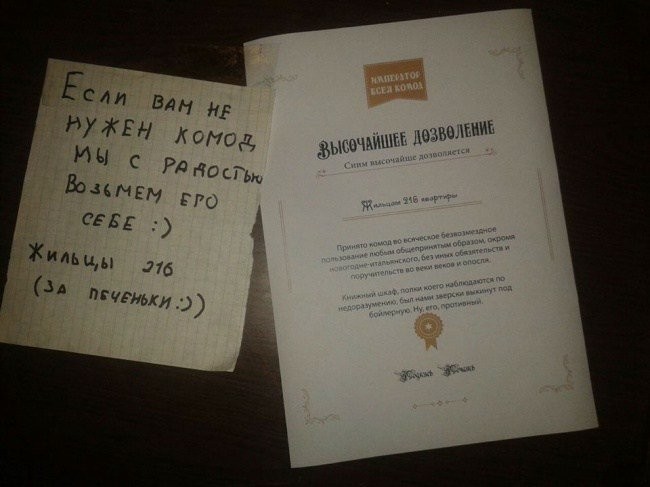 Если вам не
нужен комод
мы с радостью
возьмем его
себе :)
Жильцы 216
(за печеньки :))
ИМПЕРАТОР
ВСЕЯ КОМОД
Высочайшее дозволение
Сиим высочайше дозволяется
Жильцам 216 квартиры
Принято комод во всяческое безвозмездное
пользование любым общепринятым образом, окромя
новогодне-итальянского, без иных обязательств и
поручительств во веки веков и опосля.
Книжный шкаф, полки коего наблюдаются по
недоразумению, был нами зверски выкинут под
бойлерную. Ну, его, противный.